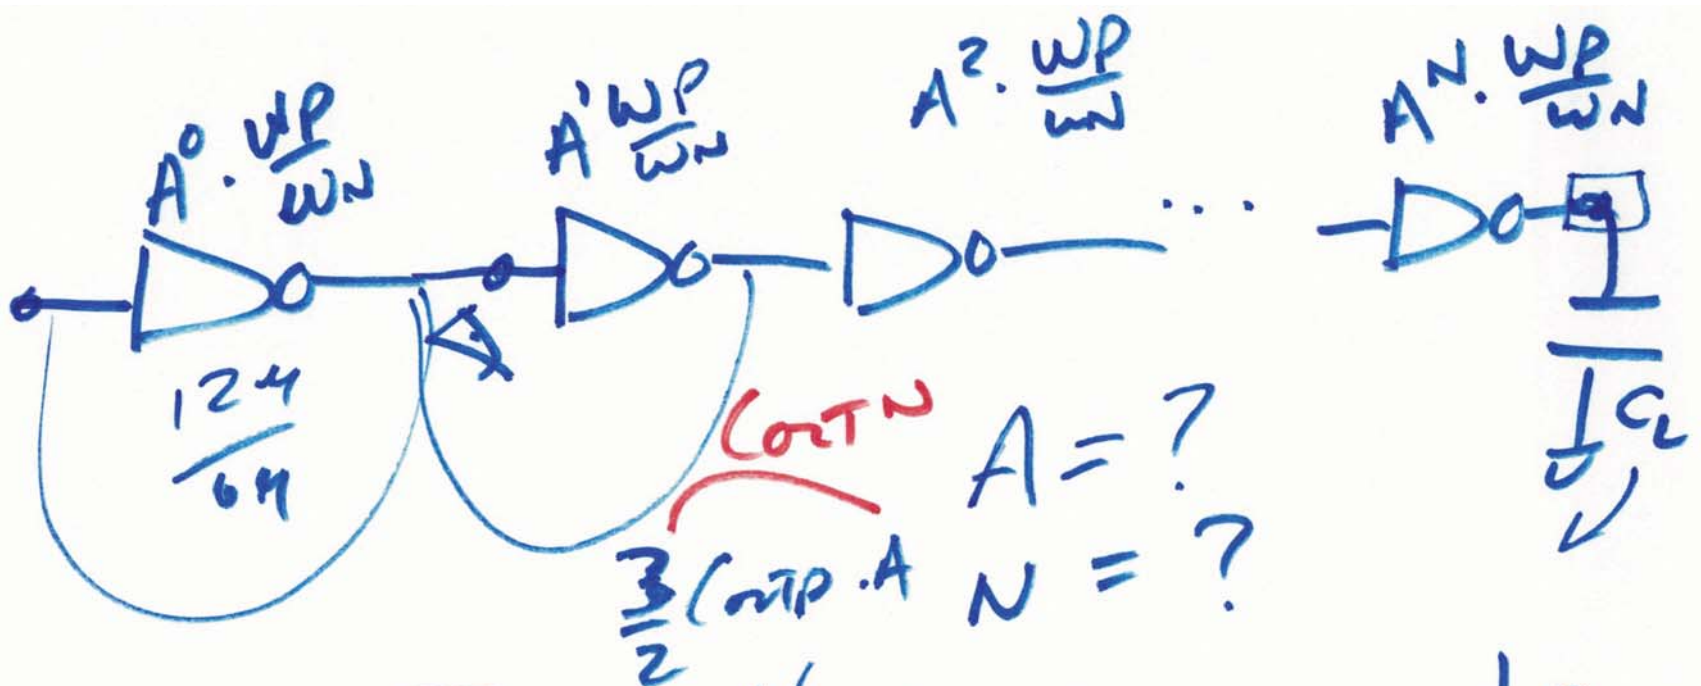 A⁰ · WP/WN
A¹ WP/WN
A² · WP/WN
Aᴺ · WP/WN
...
12µ/6µ
CoxTN
A = ?
CL
3/2 (oxTP · A
N = ?